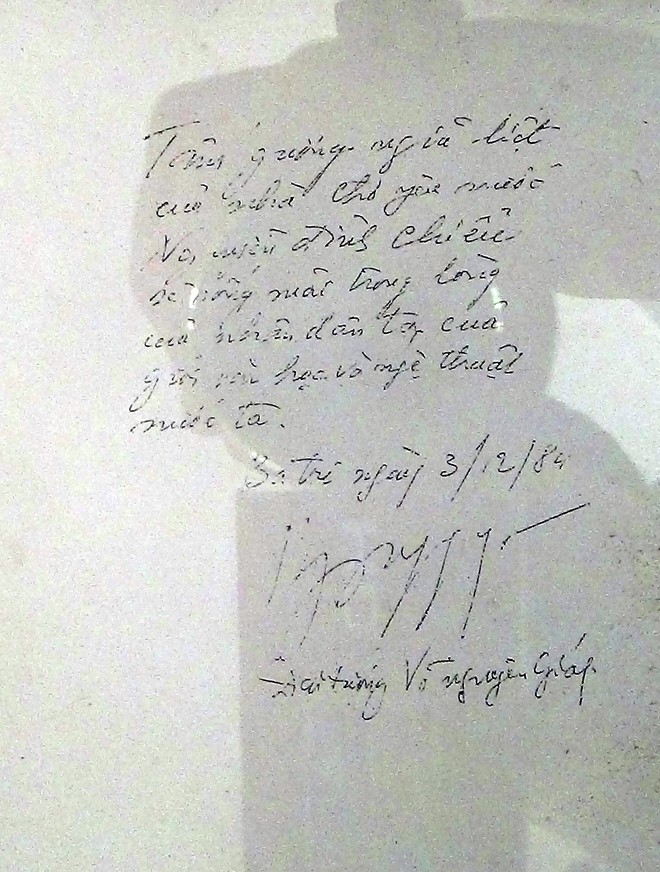 Tấm gương nghĩa liệt
của nhà thơ yêu nước
Nguyễn đình Chiểu
sẽ sống mãi trong lòng
của nhân dân ta, của
giới văn học và nghệ thuật
nước ta.
Ba tri ngày 3/12/84
Đại tướng Võ nguyên Giáp